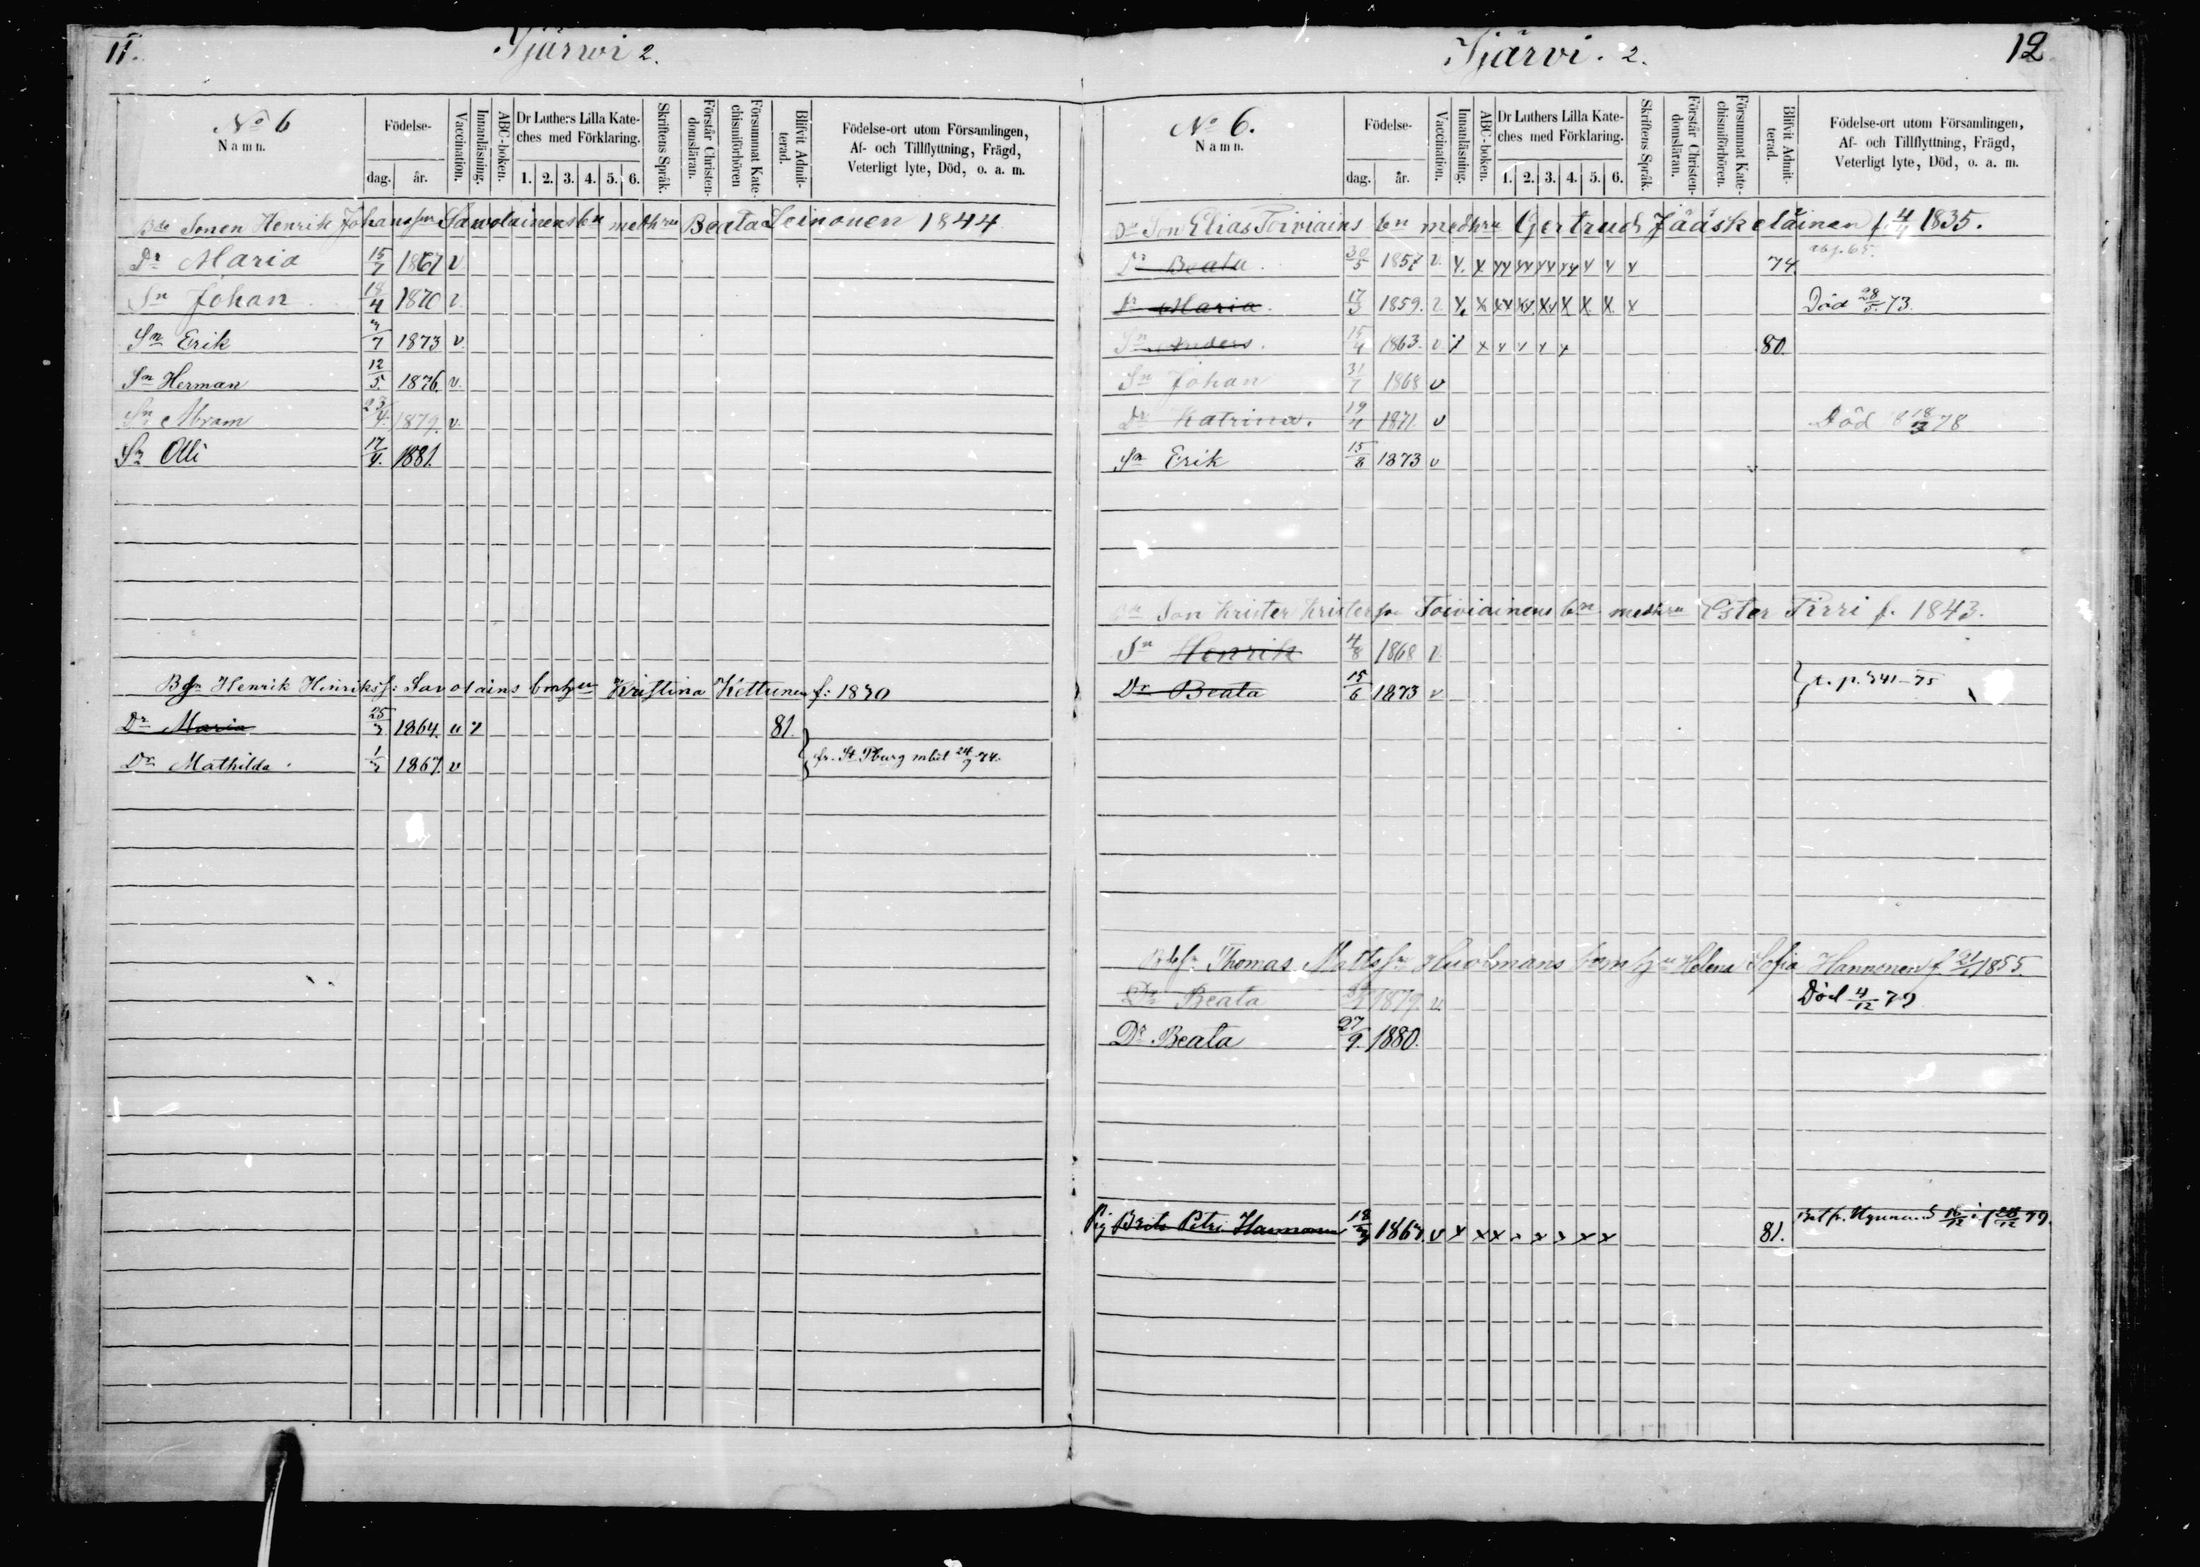 11.
Sjärwi 2.
No 6
Namn.
Födelse-
dag.
år.
Vaccination.
Innanläsning.
ABC-boken.
Dr Luthers Lilla Kate-
ches med Förklaring.
1. 2. 3. 4. 5. 6.
Skriftens Språk.
Förstår Christen-
domsläran.
Försummat Kate-
chismiförhören
Blifvit Admit-
terad.
Födelse-ort utom Församlingen,
Af- och Tillflyttning, Frägd,
Veterligt lyte, Död, o. a. m.
Sonen Henrik Johansson Sawolainens bn medhru Beata Loinonen 1844
Dr Maria 15/7 1867 v
Sn Johan 18/4 1870 v.
Sn Erik 7/7 1873 v.
Sn Herman 12/5 1876. v.
Sn Abram 23/4. 1879. v.
Sn Olli 17/4. 1881.
Henrik Henrikss: Savolains Kristina Kettunen f: 1830
Dr Maria 25/3 1864. v 81.
Dr Mathilda 1/3 1867. v
fr. St. Pburg mbet 24/9 74.
12
Sjärvi. 2.
No 6.
Namn.
Födelse-
dag.
år.
Vaccination.
Innanläsning.
ABC-boken.
Dr Luthers Lilla Kate-
ches med Förklaring.
1. 2. 3. 4. 5. 6.
Skriftens Språk.
Förstår Christen-
domsläran.
Försummat Kate-
chismiförhören.
Blifvit Admit-
terad.
Födelse-ort utom Församlingen,
Af- och Tillflyttning, Frägd,
Veterligt lyte, Död, o. a. m.
Son Elias Toiviains bn medhru Gertrud Jääskeläinen f. 4/4 1835.
Dr Beata 30/5 1857 v. x x xx xx xx xx x x x 74
Dr Maria 17/3 1859. v. x x xx xx xx x x x x Död 28/5. 73.
Sn Anders. 15/4 1863. v x x x x x 80.
Sn Johan 31/7 1868 v
Dr Katrina. 19/4 1871. v Död 18/3 78
Sn Erik 15/8 1873 v
Son Krister Kristersson Toiviainens bn medhru Ester Pirri f. 1843.
Sn Henrik 4/8 1868 v.
Dr Beata 15/6 1873 v t. p. 341-75
Thomas Mattsson Huolmans Helena Sofia Hannonen f 21/1 1855
Dr Beata 1879. v. Död 4/12 79
Dr Beata 27/9. 1880.
Pig Brita Petri Hannonen 18/3 1867. v x x x x x x x x 81. 79.